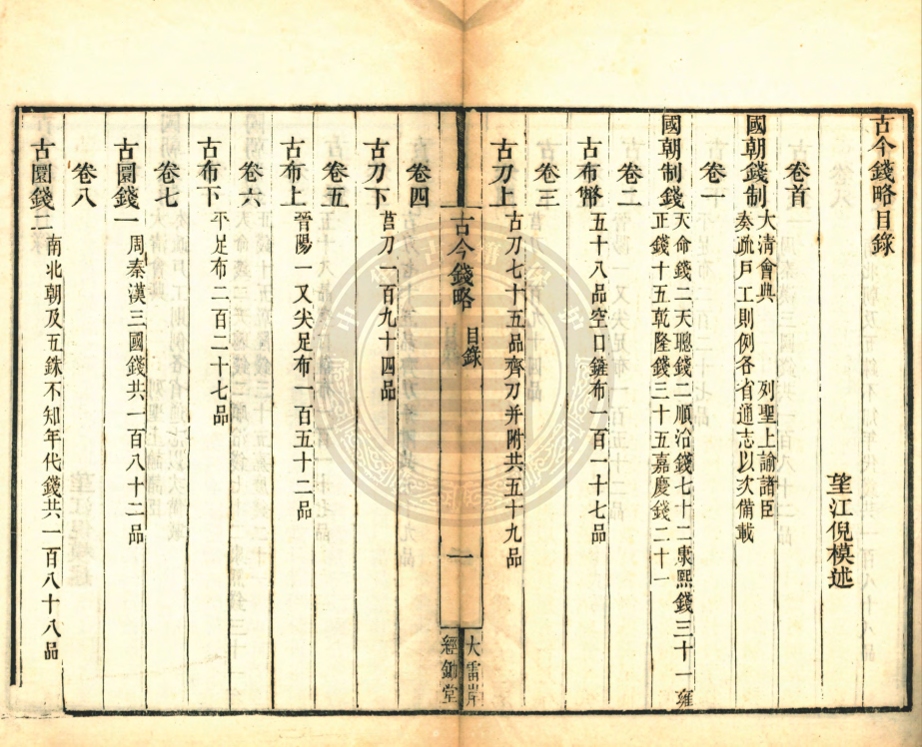 古今錢略目錄
望江倪模述
卷首
國朝錢制
大清會典 列聖上諭諸臣
奏疏戶工則例各省通志以次備載
卷一
國朝制錢
天命錢二天聰錢二順治錢七十二康熙錢三十一雍
正錢十五乾隆錢三十五嘉慶錢二十一
卷二
古布幣
五十八品空口鏟布一百一十七品
卷三
古刀上
古刀七十五品齊刀并附共五十九品
古今錢略
目錄
一
大雷岸
經鋤堂
卷四
古刀下
莒刀一百九十四品
卷五
古布上
晉陽一又尖足布一百五十二品
卷六
古布下
平足布二百二十七品
卷七
古圜錢一
周秦漢三國錢共一百八十二品
卷八
古圜錢二
南北朝及五銖不知年代錢共一百八十八品